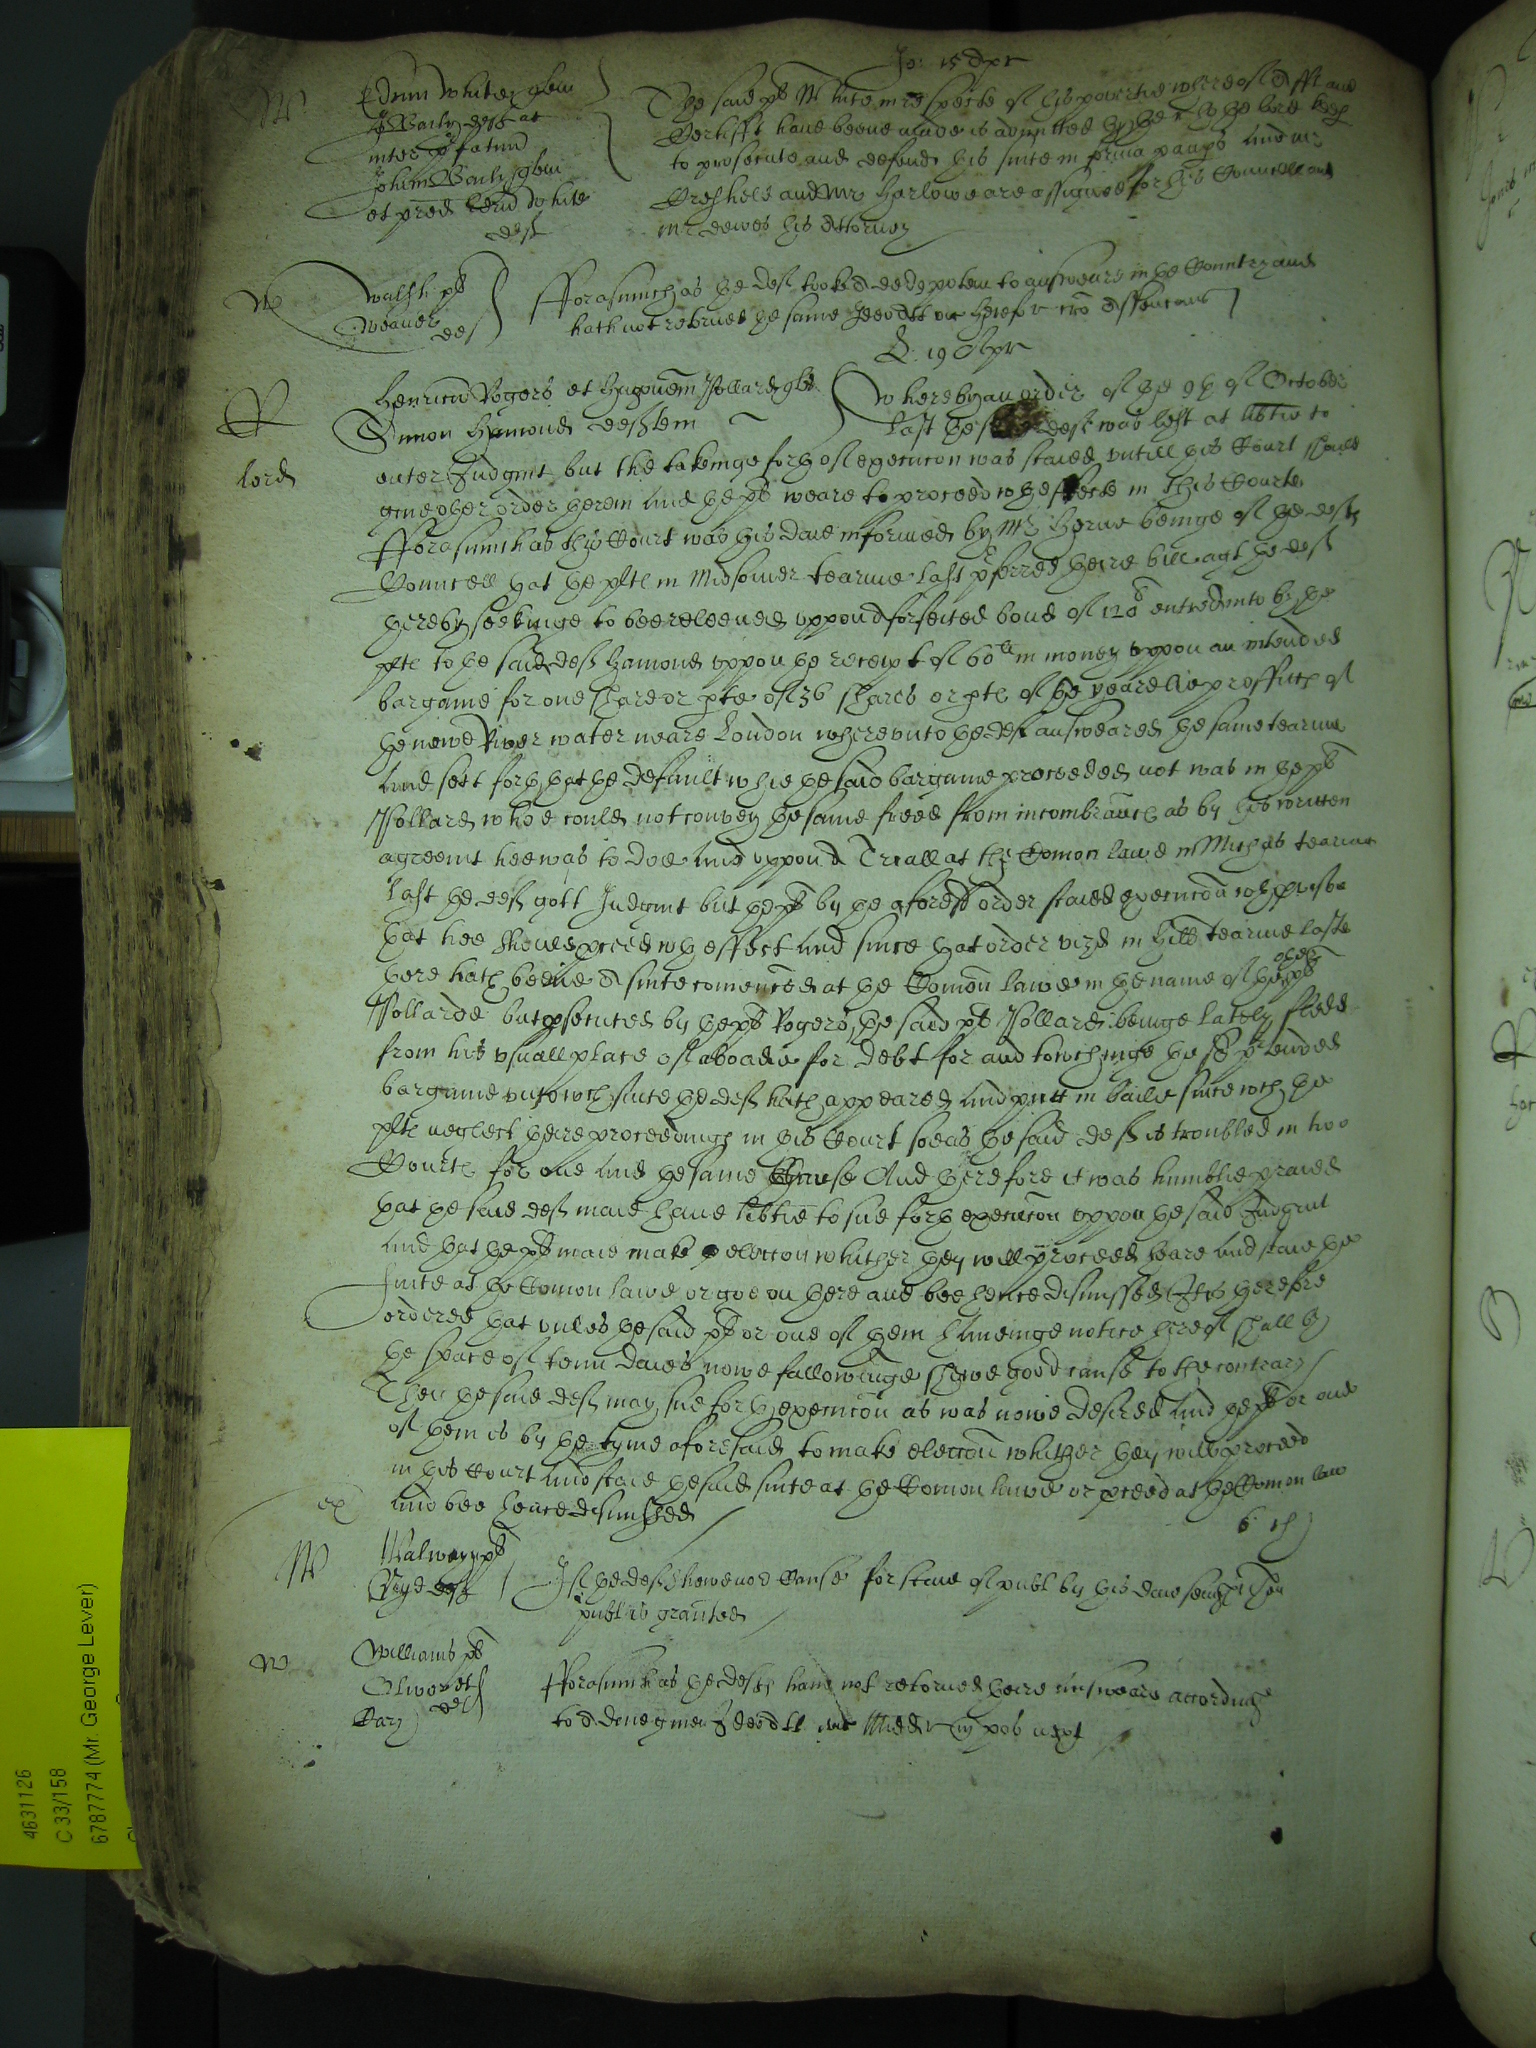 Jo: 15 Apr
W
Edrum White quer
Jo Baily deft at
inter prefatum
Johem Baily quer
et pred Edrū White
deft
The said plt White in respecte of his povertie whereof Afft and
Certifft have beene made is admitted by the r: ho: the lord keep
to prosecute and defend his suite in forma paups And mr
Cresheld and Mr Harlowe are assigned for his Councell and
mr dewes his Attorney
W
Walsh plt
Weaver
def
Fforasmuch as the deft tooke A ded potem to answeare in the Countrey and
hath not retorned the same
L: 19 Apr
R
lord
Henricū Rogers et Hugonem Pollard qts
Simon Hamond defttem
Whereby an order of the 9th of October
last the said deft was left at libtie to
enter Judgmt but the takeinge forth of execucon was staied untill this Court should
give other order herein And the plts weare to proceed wth effecte in this Courte
Fforasmuch as this Court was this daie informed by Mr Herne beinge of the defts
Councell that the plts in Midsomer tearme last pferred their bill agt the deft
thereby seekinge to bee releeved uppon A forfeited bond of 120 entred into by the
plts to the said deft Hamond uppon the receipt of 60li in money uppon an intended
bargaine for one share or pte of 36 shares or pts of the yearelie proffitts of
the newe River water neare London whereunto the deft answeared the same tearme
And sett forth that the default whie the said bargaine proceeded not was in the plt
Pollard whoe could not convey the same freed from incombrances as by his written
agreemt hee was to doe And uppon A Triall at the Comon lawe in Michas tearme
last the deft gott Judgmt but the plts by the aforesd order staied execucon
that hee should pceed wth effect And since that order vizd in Hill tearme laste
there hath beene A suite comenced at the Comon lawe in the name of the other plt
Pollarde but psecuted by the plt Rogers, the said plt Pollard beinge lately fledd
from his usuall place of aboade for debt for and towchinge the sd ptended
bargaine unto wch suite the deft hath appeared And putt in baile since wch the
plts neglect theire proceedings in this Court soe as the said deft is troubled in two
Courts for one And the same Cause And therefore it was humblie praied
that the said deft maie have libtie to sue forth execucon uppon the said Judgmt
And that the plts maie make eleccon whither they will proceed heare And staie the
suite at the Comon lawe or goe on there and bee hence dismissed It is therefore
ordered that unles the said plts or one of them haveinge notice hereof shall by
the space of tenn daies nowe followinge shewe good cause to the contrary
Then the said deft may sue forth execucon as was nowe desired And the plts or one
of them is by the tyme aforesaid to make eleccon whither they will proceed
in this Court And staie the said suite at the Comon lawe or pceed at the Comon law
And bee hence dismissed
ex
W
Walwey plt
deft
If the deft shewe noe Cause for staie of publ by this daie sennight then
publ is granted
W
Williams plt
def
Fforasmuch as the defts have not retorned theire answeare accordinge
to A
4631126
C 33/158
6787774 (Mr. George Lever)